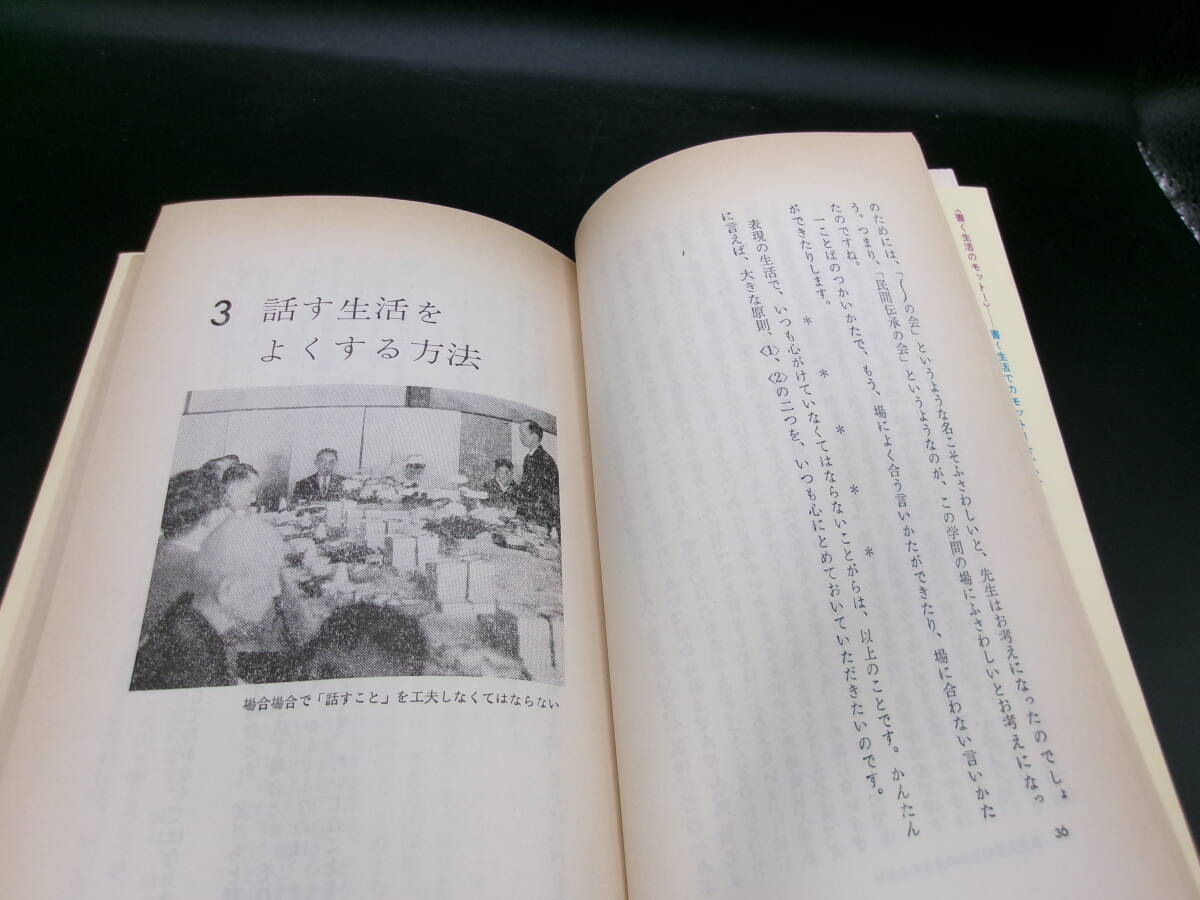 のためには、「〜の会」というような名こそふさわしいと、先生はお考えになったのでしょ
う。つまり、「民間伝承の会」というようなのが、この学問の場にふさわしいとお考えになっ
たのですね。
一ことばのつかいかたで、もう、場によく合う言いかたができたり、場に合わない言いかた
ができたりします。
＊　＊　＊　＊　＊
表現の生活で、いつも心がけていなくてはならないことがらは、以上のことです。かんたん
に言えば、大きな原則、〈1〉、〈2〉の二つを、いつも心にとめておいていただきたいのです。
36
3 話す生活を
よくする方法
場合場合で「話すこと」を工夫しなくてはならない
〈書く生活のモットー〉
書く生活でのモットー